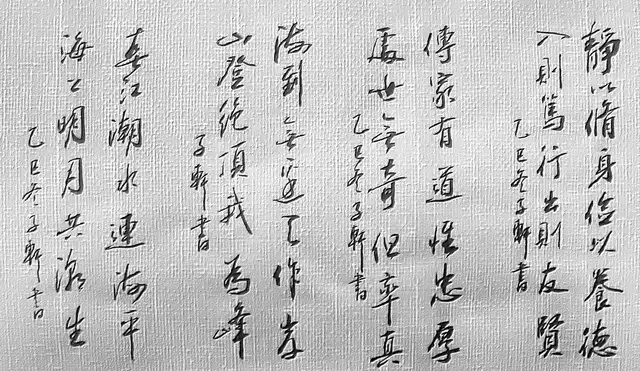 靜以脩身儉以養德
入則篤行出則友賢
乙巳冬子軒書
傳家有道惟忠厚
處世無奇但率真
乙巳冬子軒書
海到無邊天作岸
山登絶頂我為峰
子軒書
春江潮水連海平
海上明月共潮生
乙巳冬子軒書